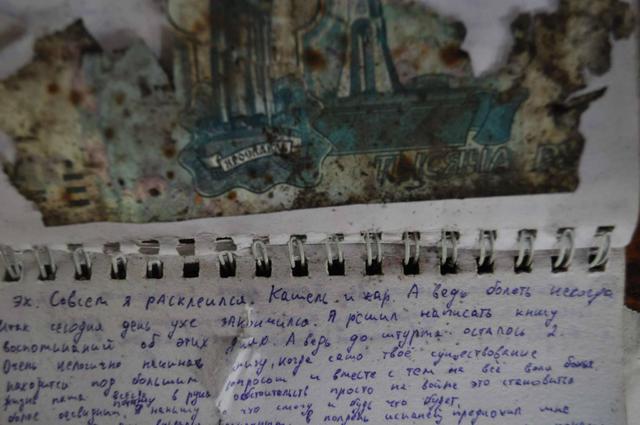 ЯРОСЛАВЛЬ
ТЫСЯЧА
Эх. Совсем я расклеился. Кашель и жар. А ведь болеть некогда
итак сегодня день уже закончился. Я решил написать книгу
воспоминаний об этих днях. А ведь до штурма осталось 2.
Очень нелогично начинать книгу, когда само твоё существование
находится под большим вопросом и вместе с тем на всё воля божья.
Жизнь наша всегда в руках обстоятельств просто на войне это становится
более очевидным. Я начну что смогу и будь что будет.
мне